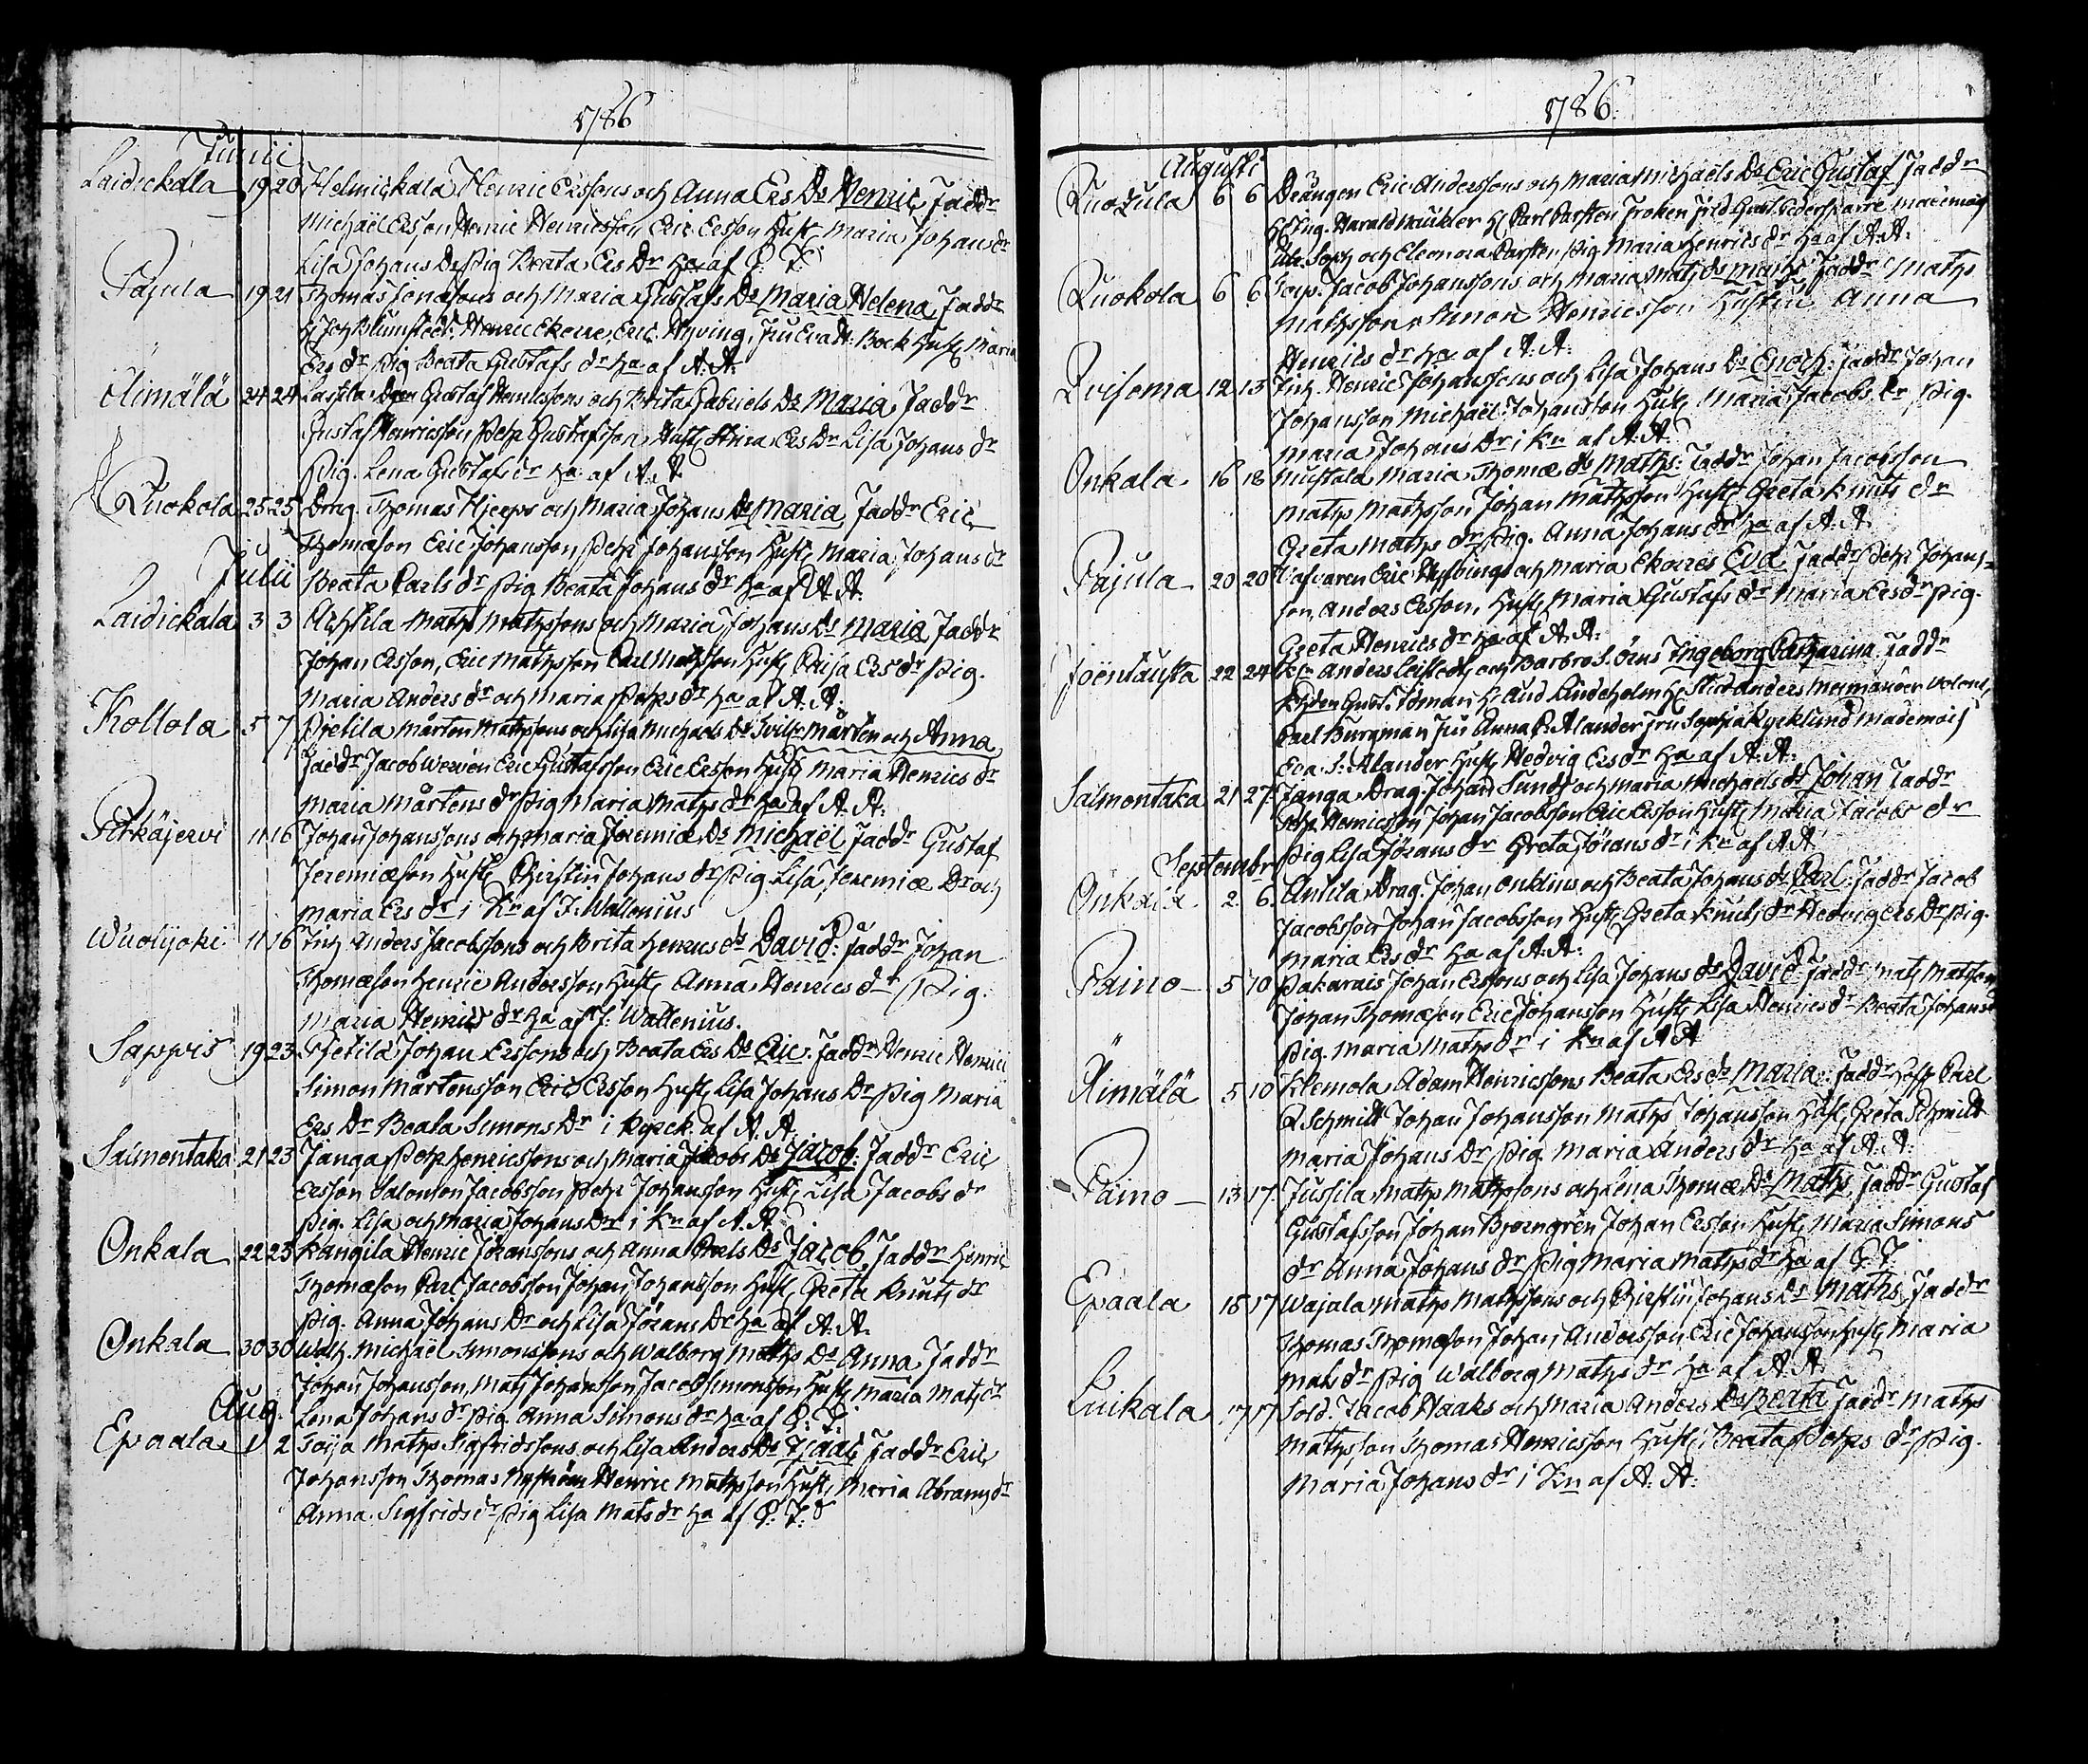 1786
Junii
Laidickala 19 20 Helmickala Henric Erssons och Anna Ers Dr Henric Faddr
Michaël Ersson Henric Henricsson Eric Ersson Hustr Maria Johans dr
Lisa Johans Dr Pig Beata Ers Dr ha af
Pajula 19 21 Thomas Jonæsons och Maria Gustafs Dr Maria Helena Faddr
H Joh Blumstedt: Henric Ekorre, Eric Hyving, Fru Eva H: Bock Hustr Maria
Ers dr Pig Beata Gustafs dr ha af A: A:
Äimälä 24 24 Lassila Dren Gustaf Henricsons och Brita Gabriels Dr Maria Faddr
Gustaf Henricsson Pehr Gustafsson Hustr Stina Ers Dr Lisa Johans dr
Pig. Lena Gustafs dr ha af A: A
Ruokola 25 25 Drag. Thomas Hjerps och Maria Johans Dr Maria Faddr Eric
Thomæson Eric Johansson Pehr Johansson Hustr Maria Johans dr
Julii Beata Carls dr Pig Beata Johans dr ha af A A:
Laidickala 3 3 Achtila Maths Mathssons och Maria Johans Dr Maria Faddr
Johan Ersson, Eric Mathsson Carl Mathsson Hustr Caisa Ers dr Pig.
Maria Anders dr och Maria Pehrs dr ha af A: A:
Kottola 5 7 Pietila Mårten Mathssons och Lisa Michaels Dr Tvill: Mårten och Anna
Faddr Jacob Werven Eric Gustafsson Eric Ersson Hustr Maria Henrics dr
Maria Mårtens dr Pig Maria Maths dr ha af A: A:
Pitkäjervi 11 16 Johan Johanssons och Maria Jeremiæ Dr Michaël Faddr Gustaf
Jeremiæson Hustr Christin Johans dr Pig Lisa Jeremiæ Dr och
Maria Ers dr i Kn af J: Wallenius
Wuolijoki 11 16 Anders Jacobssons och Brita Henrics dr David: Faddr Johan
Thomæson Henric Andersson Hustr Anna Henrics dr Pig.
Maria Henrics dr ha af J: Wallenius.
Sappis 19 23 Pietila Johan Erssons och Beata Ers Dr Eric: Faddr Henric Henrici
Simon Mårtensson Eric Ersson Hustr Lisa Johans Dr Pig Maria
Ers Dr Beata Simons Dr i Kyrck. af A: A.
Salmentaka 21 23 Janga Pehr Henricssons och Maria Jacobs Dr Jacob: Faddr Eric
Ersson Salomon Jacobsson Pehr Johansson Hustr Lisa Jacobs dr
Pig. Lisa och Maria Johans Dr i Kn af A: A:
Onkala 22 23 Kangila Henric Johanssons och Anna Carls Dr Jacob Faddr Henric
Thomæson Carl Jacobsson Johan Johansson Hustr Greta Knuts dr
Pig. Anna Johans Dr och Lisa Jörans Dr ha af A: A:
Onkala 30 30 Wah. Michaël Simonssons och Walborg Maths Dr Anna Faddr
Johan Johansson, Mats Johansson Jacob Simonsson Hustr Maria Mats dr
Aug. Lena Johans dr Pig. Anna Simons dr ha af
Epaala 1 2 Toija Maths Sigfridssons och Lisa Anders Dr Isaac Faddr Eric
Johansson Thomas Nyström Henric Mathsson Hustr Maria Abrams dr
Anna Sigfrids dr Pig Lisa Mats dr ha af
1786
Augusti
Ruokula 6 6 Drängen Eric Anderssons och Maria Michaëls Dr Eric Gustaf Faddr
H Harald H Carl Carsten Froken Fred Gust Cederskarre Mademois
Ulr. Soph och Eleonora Carsten Pig Maria Henrics dr ha af A: A:
Ruokola 6 6 Torp. Jacob Johanssons och Maria Mats dr Maths Faddr Maths
Mathsson Simon Henricsson Hustru Anna
Henrics dr ha af A: A:
Kvisema 12 13 Henric Johanssons och Lisa Johans Dr Enoch: Faddr Johan
Johansson Michaël Johansson Hustr Maria Jacobs dr Pig.
Maria Johans Dr i Kn af A: A:
Onkala 16 18 Mustala Maria Thomæ dr Maths: Faddr Johan Jacobsson
Maths Mathsson Johan Mathsson Hustr Greta Knuts dr
Greta Maths dr Pig. Anna Johans dr ha af A: A.
Pajula 20 20 Eric Hyvings och Maria Ekorres Eva Faddr Pehr Johans-
son, Anders Ersson, Hustr Maria Gustafs dr Maria Ers dr Pig.
Greta Henrics dr ha af A: A:
Joentausta 22 24 Anders Leistedt och Barbro Ingeborg Catharina Faddr
Gust. Idman H Aud Lindeholm H Stud Anders Mennander Volont,
Carl Burgman Fru Anna C Alander Fru Sophia Kyrklund Mademois
Eva S: Alander Hustr Hedvig Ers dr ha af A: A:
Salmentaka 21 27 Janga Drag. Johan Sunds och Maria Michaels dr Johan Faddr
Pehr Henricsson Johan Jacobsson Eric Ersson Hustr Maria Jacobs dr
Septembr Pig Lisa Jörans dr Greta Jörans dr i Kn af A A
Onkala 2 6 Anttila Drag. Johan Onklins och Beata Johans dr Carl: Faddr Jacob
Jacobsson Johan Jacobsson Hustr Greta Knuts dr Hedvig Ers Dr Pig.
Maria Ers dr ha af A: A:
Paino 5 10 Pakarais Johan Erssons och Lisa Johans dr David Faddr Mats Matsson
Johan Thomæson Eric Johansson Hustr Lisa Henrics dr Beata Johans dr
Pig. Maria Maths dr i Kn af A A
Äimälä 5 10 Klemola Adam Henricssons Beata Ers dr Maria: Faddr Carl
Schmidt Johan Johansson Maths Johansson Hustr Greta Schmidt
Maria Johans Dr Pig. Maria Anders dr ha af A: A:
Paino 13 17 Jussila Maths Mathssons och Lena Thomæ Dr Maths Faddr Gustaf
Gustafsson Johan Bjorngrén Johan Ersson Hustr Maria Simons
dr Anna Johans dr Pig Maria Maths dr ha af
Epaala 15 17 Wajala Maths Mathssons och Christin Johans Dr Maths Faddr
Thomas Thomæson Johan Andersson Eric Johansson Hustr Maria
Mats dr Pig Walborg Maths dr ha af A: A:
Luikala 17 17 Sold. Jacob Haaks och Maria Anders Dr Beata Faddr Maths
Mathsson Thomas Henricsson Hustr Beata Pehrs dr Pig.
Maria Johans dr i Kn af A: A: